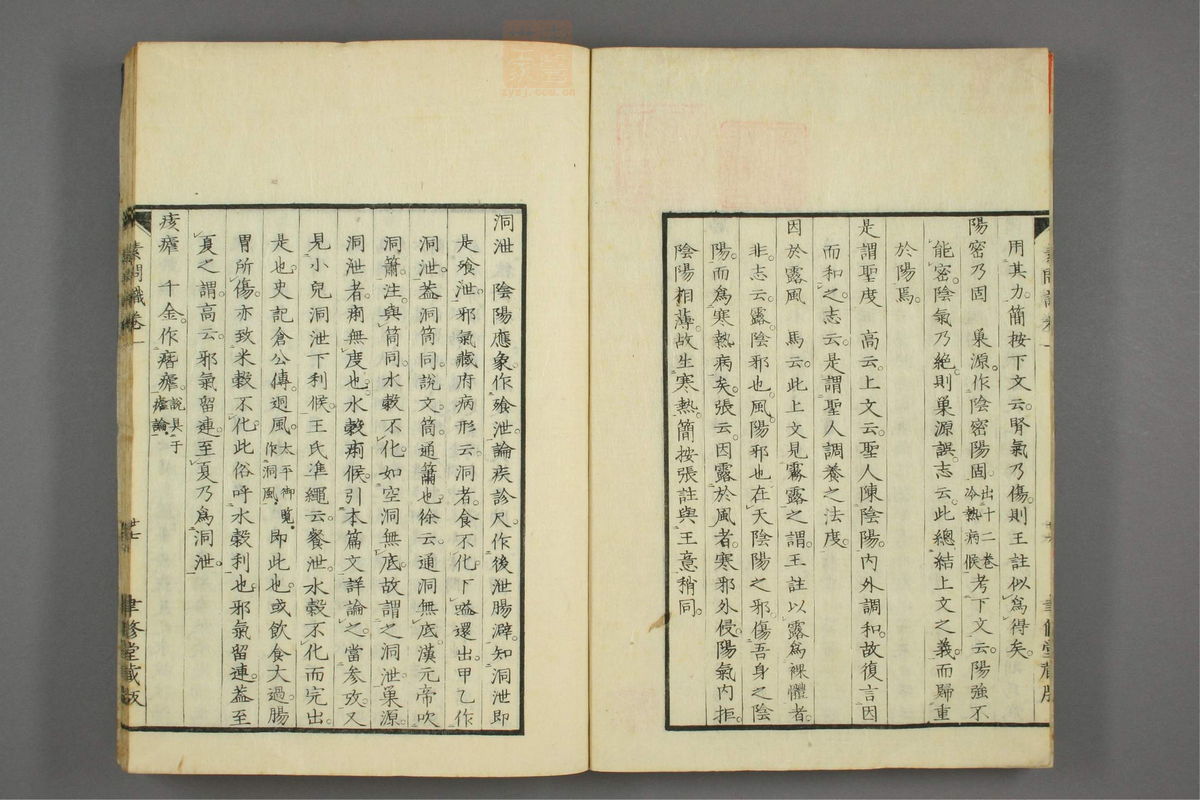 用其力。簡按下文云。腎氣乃傷。則王註似爲得矣。
陽密乃固　巢源作陰密陽固。出十二卷冷熱病候考下文云。陽強不
能密。陰氣乃絕。則巢源誤。志云。此總結上文之義。而歸重
於陽焉。
是謂聖度　高云。上文云。聖人陳陰陽。內外調和。故復言因
而和之。志云。是謂聖人調養之法度。
因於露風　馬云。此上文見霧露之謂。王註以露爲裸體者。
非。志云。露。陰邪也。風。陽邪也。在天陰陽之邪。傷吾身之陰
陽。而爲寒熱病矣。張云。因露於風者。寒邪外侵。陽氣內拒。
陰陽相薄。故生寒熱。簡按張註與王意稍同。
洞泄　陰陽應象。作飧泄。論疾診尺。作後泄腸澼。知洞泄即
是飧泄。邪氣藏府病形云。洞者。食不化。下嗌還出。甲乙作
洞泄。蓋洞筒同。說文。筒通簫也。徐云。通洞無底。漢元帝吹
洞簫。注與筒同。水穀不化。如空洞無底。故謂之洞泄。巢源
洞泄者。痢無度也。水穀痢候。引本篇文詳論之。當參攷。又
見小兒洞泄下利候。王氏準繩云。飧泄。水穀不化而完出。
是也。史記倉公傳。迵風。太平御覽。作洞風。即此也。或飲食大過。腸
胃所傷。亦致米穀不化。此俗呼水穀利也。邪氣留連。蓋至
夏之謂。高云。邪氣留連至夏。乃爲洞泄。
痎瘧　千金作㾬瘧。說具于瘧論。
素問識卷一
廿七
聿修堂藏版